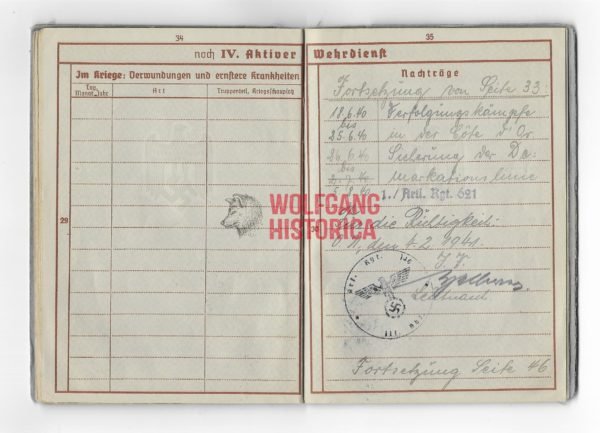 34
noch IV. Aktiver
Im Kriege: Verwundungen und ernstere Krankheiten
Tag, Monat, Jahr
Art
Truppenteil, Kriegsschauplatz
29
35
Wehrdienst
Nachträge
Fortsetzung von Seite 33:
18.6.40 Verfolgungskämpfe
bis
25.6.40 in der Côte d'Or
26.6.40 Sicherung der De-
bis
markationslinie
1./ Artl. Rgt. 621
Für die Richtigkeit:
O.U., den 4.2.1941.
Leutnant
30
Fortsetzung Seite 46
WOLFGANG
HISTORICA